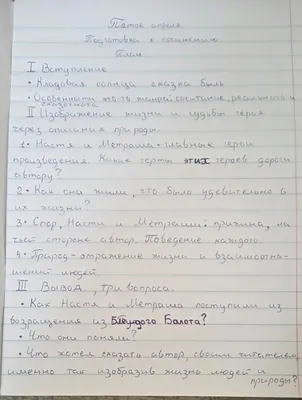 Пятое апреля
Подготовка к сочинению
План
I Вступление
• Кладовая солнца сказка быль
• Особенности это-го жанра/сочетание, реального и
сказочного.
II Изображение жизни и судьбы героя
через описания природы.
1. Настя и Метраша-главные герои
произведения. Какие черты этих героев дороги
автору?
2. Как они жили, что было удивительно в
их жизни?
3. Спор, Насти и Метраши: причина, на
чьей стороне автор. Поведение каждого.
4. Природ-отражение жизни и взаимоотно-
шений людей.
III Вывод, три вопроса.
• Как Настя и Метраша поступили из
возращения из Болота?
• Что они поняли?
• Что хотел сказать автор, своим читателям,
именно так изобразив жизнь людей и
природы?